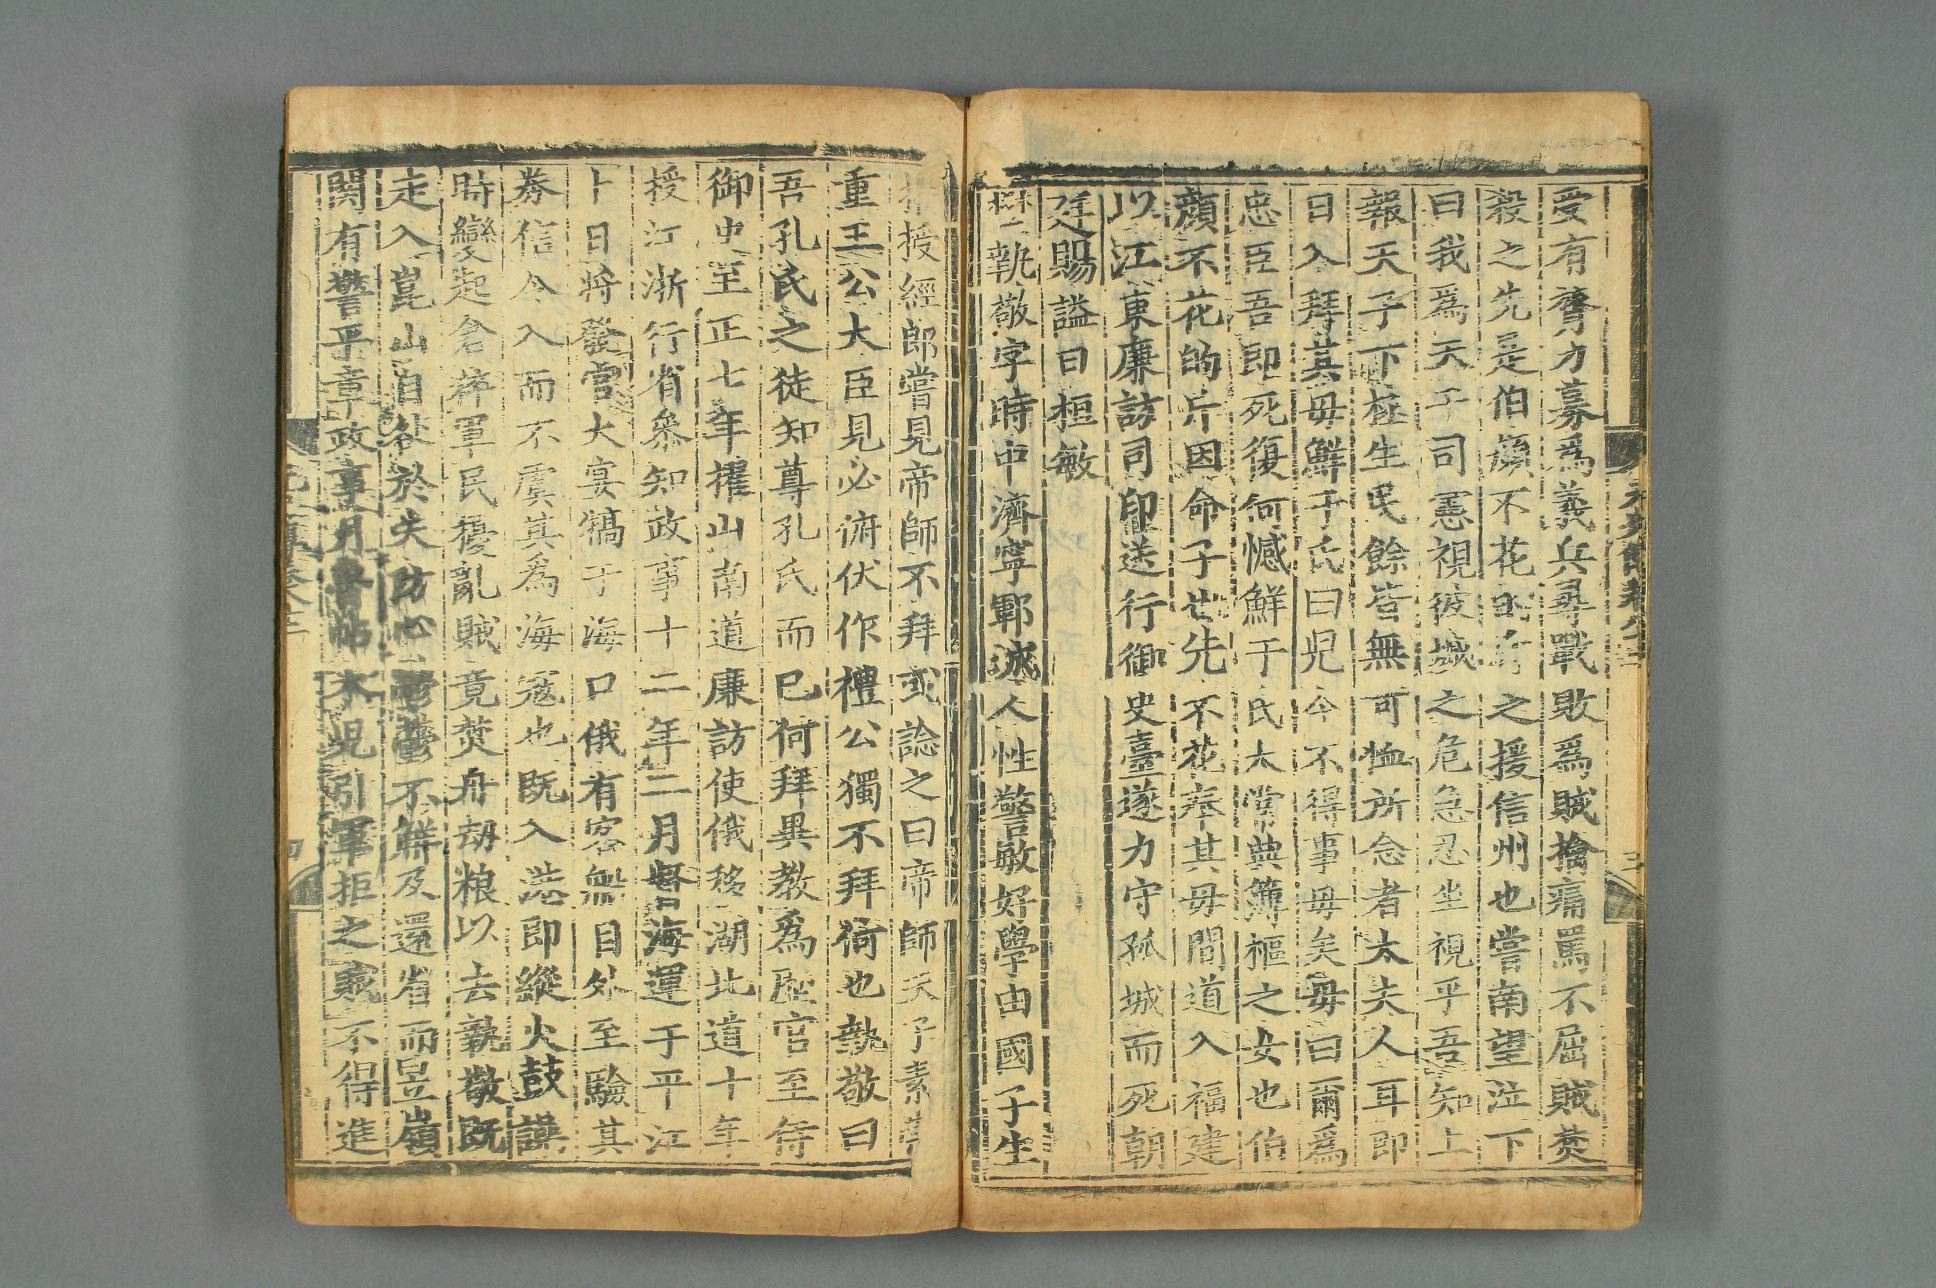 受有膂力募爲義兵尋戰敗爲賊擒痛罵不屈賊焚
殺之先是伯顔不花的斤之援信州也嘗南望泣下
曰我爲天子司憲視彼城之危急忍坐視乎吾知上
報天子下拯生民餘皆無可恤所念者太夫人耳即
日入拜其母鮮于氏曰兒今不得事母矣母曰爾爲
忠臣吾即死復何憾鮮于氏太常典簿樞之女也伯
顔不花的斤因命子也先不花奉其母間道入福建
以江東廉訪司印送行御史臺遂力守孤城而死朝
廷賜謚曰桓敏
樊執敬字時中濟寧鄆城人性警敏好學由國子生
擢授經郎嘗見帝師不拜或諗之曰帝師天子素崇
重王公大臣見必俯伏作禮公獨不拜何也執敬曰
吾孔氏之徒知尊孔氏而已何拜異教爲歷官至侍
御史至正七年擢山南道廉訪使俄移湖北道十年
授江浙行省參知政事十二年二月督海運于平江
十日將發官大宴犒于海口俄有客船自外至驗其
券信令入而不虞其爲海寇也既入港即縱火鼓譟
時變起倉猝軍民擾亂賊竟焚舟劫粮以去執敬既
走入崑山自咎於失防心鬱鬱不解及還省而昱嶺
関有警平章政事月魯帖木兒引軍拒之賊不得進
元史節要卷之十二